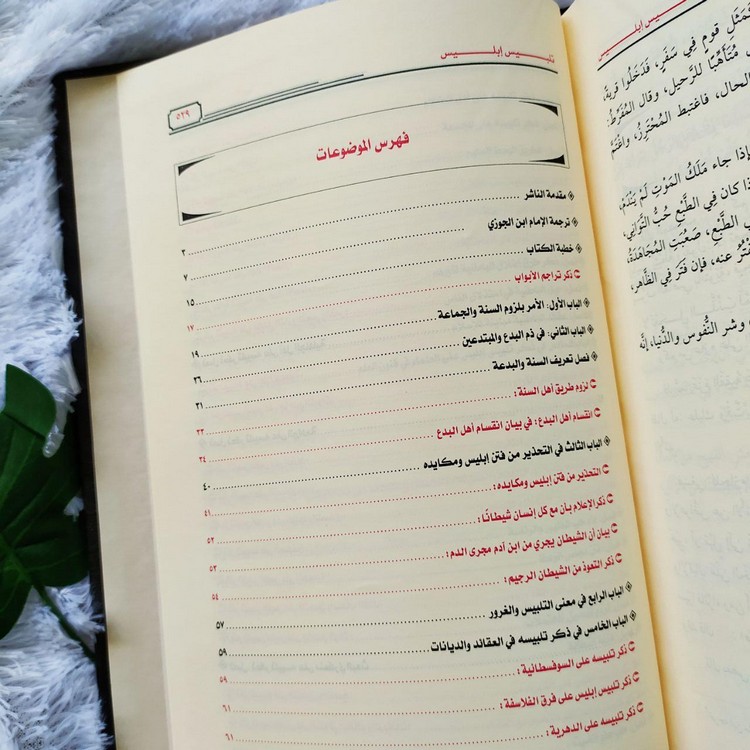 تلبيس إبليس
٥٢٩
فهرس الموضوعات
مقدمة الناشر ........ ٣
ترجمة الإمام ابن الجوزي ........ ٧
خطبة الكتاب ........ ١٥
ذكر تراجم الأبواب ........ ١٧
الباب الأول: الأمر بلزوم السنة والجماعة ........ ١٩
الباب الثاني: في ذم البدع والمبتدعين ........ ٢٦
فصل تعريف السنة والبدعة ........ ٣١
لزوم طريق أهل السنة: ........ ٣٣
انقسام أهل البدع: في بيان انقسام أهل البدع ........ ٣٤
الباب الثالث في التحذير من فتن إبليس ومكايده ........ ٤٠
التحذير من فتن إبليس ومكايده: ........ ٤١
ذكر الإعلام بأن مع كل إنسان شيطانًا: ........ ٥٢
بيان أن الشيطان يجري من ابن آدم مجرى الدم: ........ ٥٣
ذكر التعوذ من الشيطان الرجيم: ........ ٥٤
الباب الرابع في معنى التلبيس والغرور ........ ٥٧
الباب الخامس في ذكر تلبيسه في العقائد والديانات ........ ٥٩
ذكر تلبيسه على السوفسطائية: ........ ٥٩
ذكر تلبيس إبليس على فرق الفلاسفة: ........ ٦١
ذكر تلبيسه على الدهرية: ........ ٦١
تلبيس إبليس
كمَثَلِ قومٍ في سَفَرٍ، فَدَخَلُوا قريةً،
مُتَأَهِّبًا للرَّحيل، وقال المُفَرِّطُ:
الحال، فاغتبط المُحْتَرِزُ، واغْتَمَّ
إذا جاء مَلَكُ المَوْتِ لَمْ يَنْدَمْ،
كان في الطَّبْعِ حُبُّ التَّوَاني،
الطَّبْعِ، صَعُبَتِ المُجَاهَدَةُ،
عنه، فإن فَتَرَ في الظَّاهر،
وشر النُّفُوس والدُّنيا، إنَّه